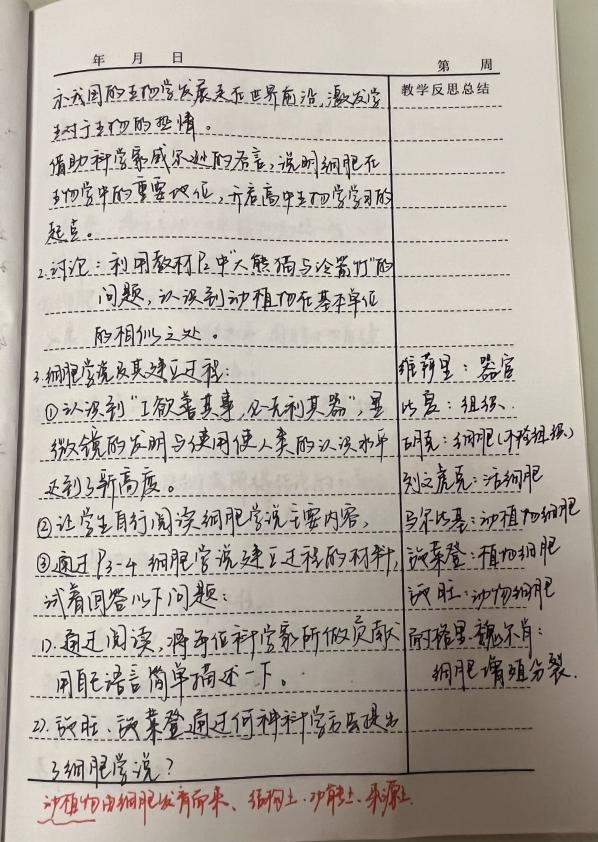 年 月 日
第 周
示我国的生物学发展走在世界前沿,激发学
生对于生物的热情。
借助科学家威尔逊的名言,说明细胞在
生物学中的重要地位,开启高中生物学学习的
起点。
2.讨论:利用教材P2中"大熊猫与冷箭竹"的
问题,认识到动植物在基本单位
的相似之处。
3.细胞学说及其建立过程:
①认识到"工欲善其事,必先利其器",显
微镜的发明与使用使人类的认识水平
达到了新高度。
②让学生自行阅读细胞学说主要内容,
③通过P3-4细胞学说建立过程的材料,
试着回答以下问题:
1).通过阅读,将每位科学家所做贡献
用自己语言简单描述一下。
2).施旺、施莱登通过何种科学方法提出
了细胞学说?
教学反思总结
维萨里:器官
比夏:组织.
胡克:细胞(木栓组织)
列文虎克:活细胞
马尔比基:动植物细胞
施莱登:植物细胞
施旺:动物细胞
耐格里.魏尔肖:
细胞增殖分裂.
动植物由细胞发育而来、结构上.功能上.来源上.